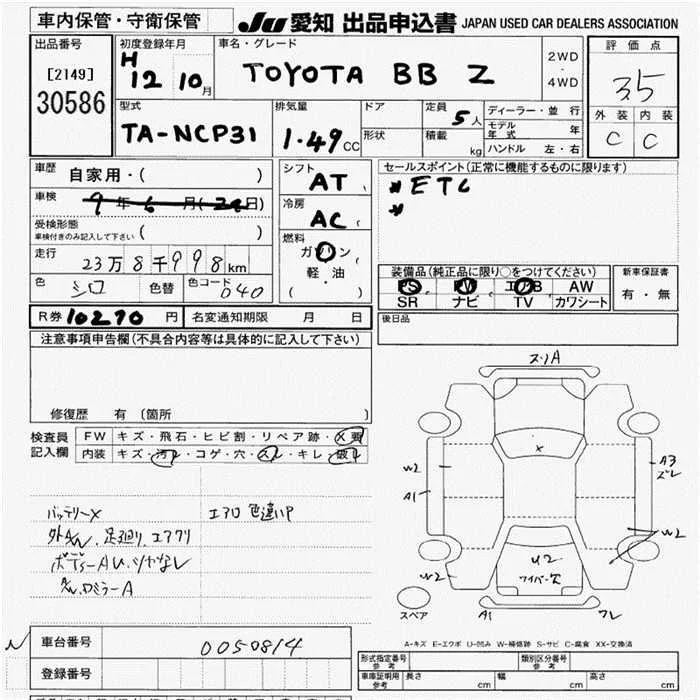 車内保管・守衛保管
JU 愛知 出品申込書 JAPAN USED CAR DEALERS ASSOCIATION
出品番号
[2149]
30586
初度登録年月
H 12 10月
車名・グレード
TOYOTA BB Z
2WD
・
4WD
評価点
3.5
外装 内装
C C
型式
TA-NCP31
排気量
1.49CC
ドア
形状
定員
5人
積載
kg
ディーラー・並行
モデル年式 年
ハンドル 左・右
車歴 自家用・( )
車検 9年6月( 日)
受検形態
車検付きのみ記入して下さい ( )
走行 23万8千998km
色 シロ 色替 色コード 040
シフト AT
冷房 AC
燃料
ガソリン
・
軽・油
( )
セールスポイント(正常に機能するものに限ります)
* ETC
*
装備品(純正品に限り○をつけてください)
PS PW エアB AW
SR ナビ TV カワシート
新車保証書
有・無
R券 10270円 名変通知期限 月 日
後日品
注意事項申告欄(不具合内容等は具体的に記入して下さい)
修復歴 有 (箇所 )
検査員記入欄
FW キズ・飛石・ヒビ割・リペア跡・X要
内装 キズ・汚レ・コゲ・穴・スレ・キレ・破レ
バッテリーX
エアロ 色違いP
ボデーAU、ツヤなし
ドロミラーA
スリA
X
W2
A1
A3
ズレ
W2
W2
U2
ワイパー欠
A1
ワレ
スペア
A-キズ E-エクボ U-凹み W-補修跡 S-サビ C-腐食 XX-交換済
車台番号 0050814
登録番号
形式指定番号
参考
類別区分番号
参考
車庫証明用
参考
長さ cm 幅 cm 高さ cm